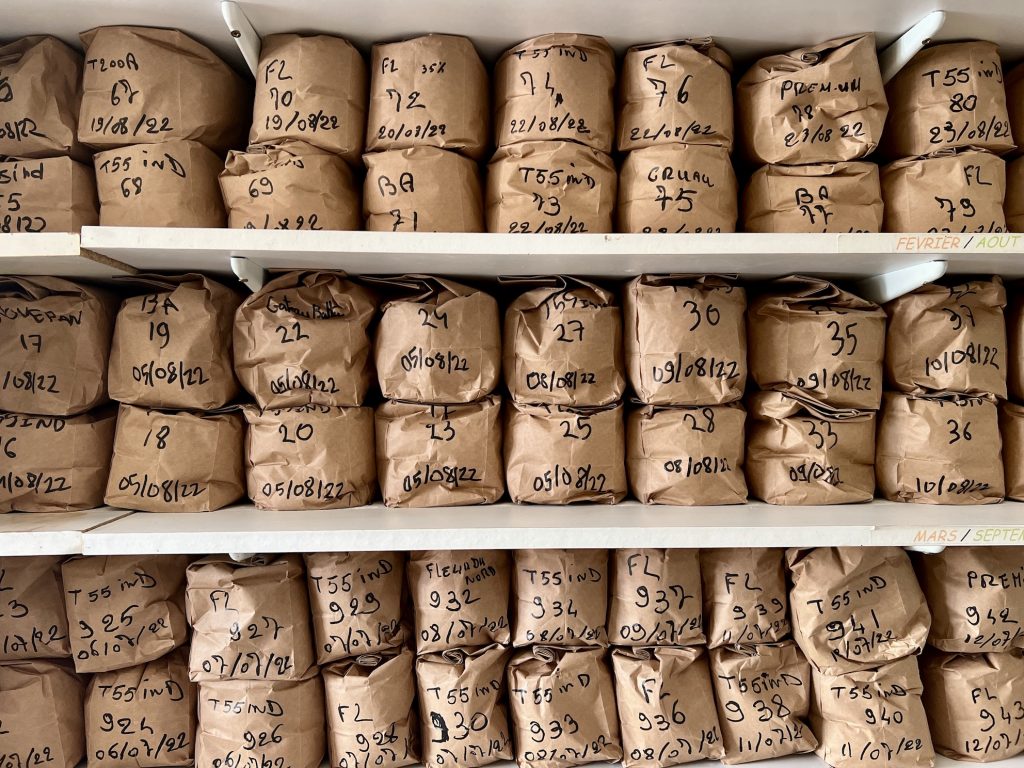 T200A
67
19/08/22
FL
70
19/08/22
FL 35%
72
20/08/22
T55 inD
74
22/08/22
FL
76
22/08/22
PREMIUM
78
23/08 22
T55 inD
80
23/08/22
T55 inD
68
69
BA
71
T55 inD
73
22/08/22
GRUAU
75
BA
77
FL
79
FEVRIER / AOUT
17
/08/22
BA
19
05/08/22
22
05/08/22
24
05/08/22
27
08/08/22
30
09/08/22
35
09/08/22
37
10/08/22
18
05/08/22
20
05/08/22
23
05/08/22
25
05/08/22
28
08/08/22
33
36
10/08/22
MARS / SEPTEM
T55 inD
925
06/07/22
FL
927
07/07/22
T55 inD
929
07/07/22
932
08/07/22
T55 inD
934
08/07/22
FL
937
09/07/22
FL
939
11/07/22
T55 inD
941
PREMI
942
12/07/
T55 inD
924
06/07/22
T55 inD
926
06/07/22
FL
T55 inD
930
07/07/22
T55 inD
933
FL
936
08/07/22
T55 inD
938
11/07/22
T55 inD
940
11/07/22
FL
943
12/07/